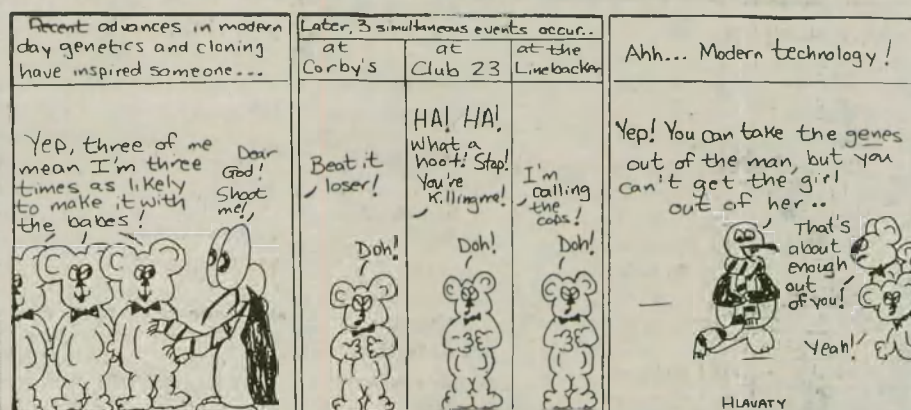 Recent advances in modern
day genetics and cloning
have inspired someone...
Yep, three of me
mean I'm three
times as likely
to make it with
the babes!
Dear
God!
Shoot
me!
Later, 3 simultaneous events occur..
at
Corby's
Beat it
loser!
Doh!
at
Club 23
HA! HA!
What a
hoot! Stop!
You're
Killing me!
Doh!
at the
Linebacker
I'm
calling
the
cops!
Doh!
Ahh... Modern technology!
Yep! You can take the genes
out of the man, but you
can't get the girl
out of her..
That's
about
enough
out
of you!
Yeah!
HLAVATY